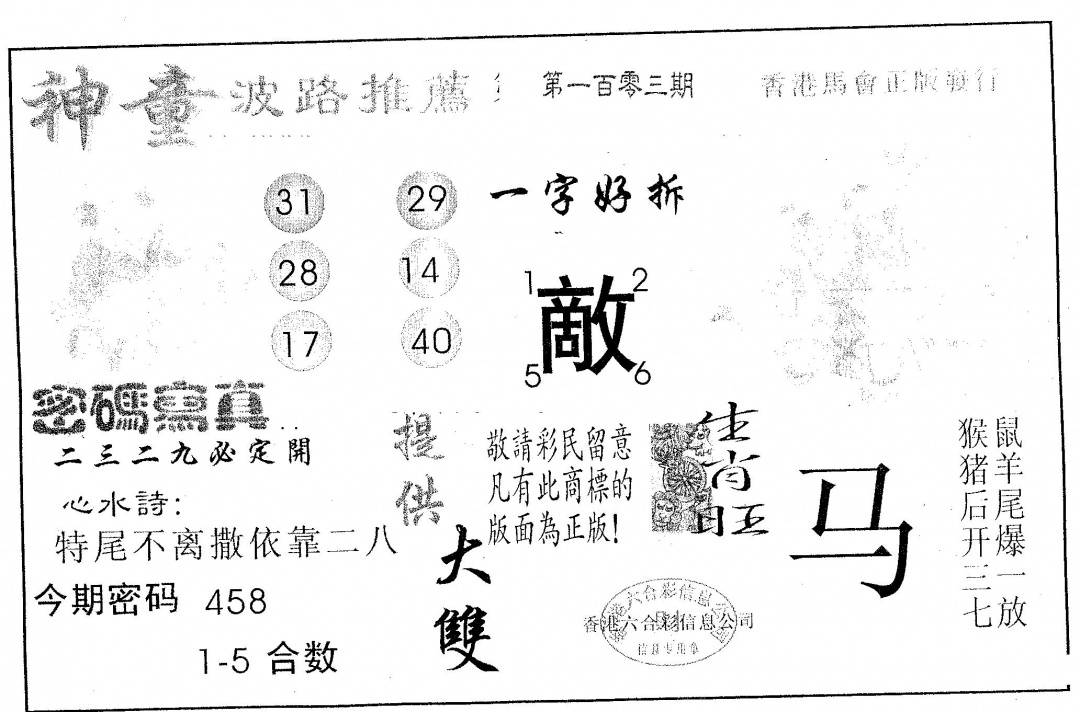 神童波路推薦 第一百零三期 香港馬會正版發行
31 29
28 14
17 40
一字好拆
1 2
敵
5 6
密碼寫真
二三二九必定開
心水詩:
特尾不离撒依靠二八
今期密码 458
1-5 合数
提供
大雙
敬請彩民留意
凡有此商標的
版面為正版!
生肖旺
马
鼠羊尾爆一放
猴猪后开三七
香港六合彩信息公司